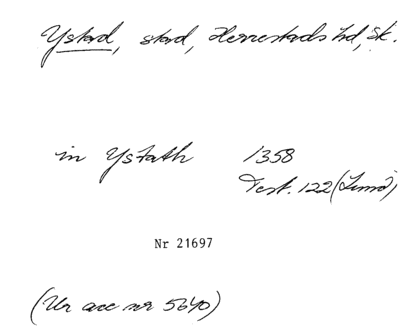 Ystad, stad, Herrestads hd, Sk.
in Ystath 1358
Test. 122 (Lund)
Nr 21697
(Ur acc nr 5640)